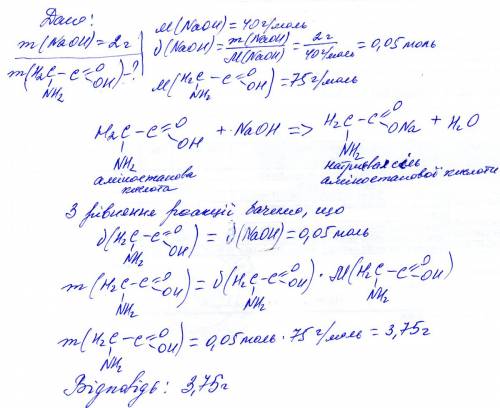 Дано:
m(NaOH) = 2г
m(H₂C–C=O OH) – ?
NH₂
M(NaOH) = 40 г/моль
ν(NaOH) = m(NaOH)/M(NaOH) = 2г/40г/моль = 0,05 моль
M(H₂C–C=O OH) = 75 г/моль
NH₂
H₂C – C=O OH + NaOH => H₂C – C=O ONa + H₂O
NH₂ NH₂
аміноетанова кислота
натрієва сіль аміноетанової кислоти
З рівняння реакції бачимо, що
ν(H₂C–C=O OH) = ν(NaOH) = 0,05 моль
NH₂
m(H₂C–C=O OH) = ν(H₂C–C=O OH) · M(H₂C–C=O OH)
NH₂ NH₂ NH₂
m(H₂C–C=O OH) = 0,05 моль · 75 г/моль = 3,75 г
NH₂
Відповідь: 3,75г